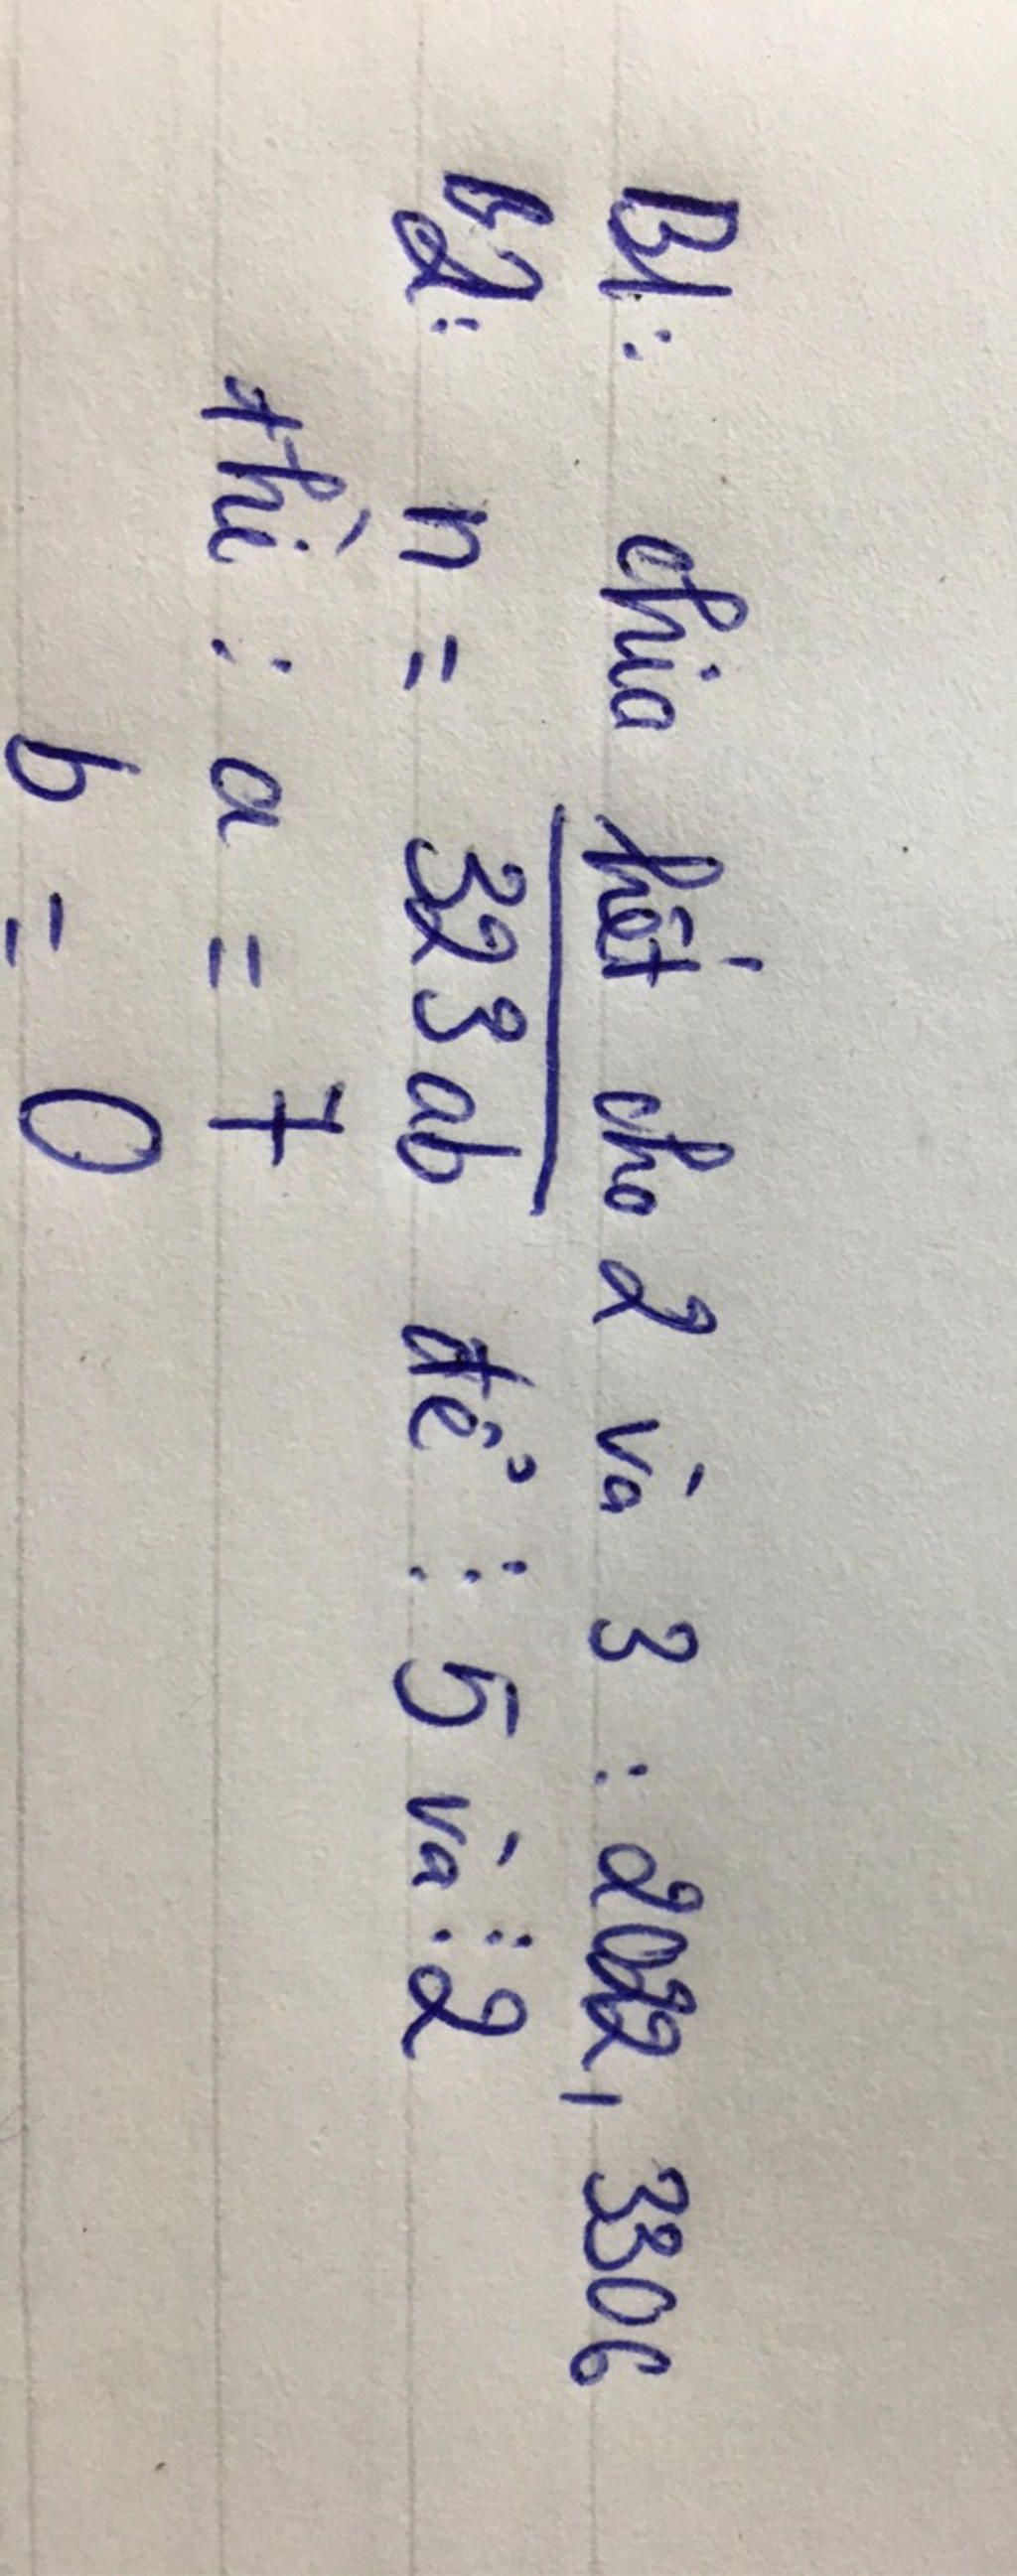 B1: chia hết cho 2 và 3 : 2022, 3306
B2: n = 323ab để ⋮ 5 và ⋮ 2
thì : a = 7
b = 0